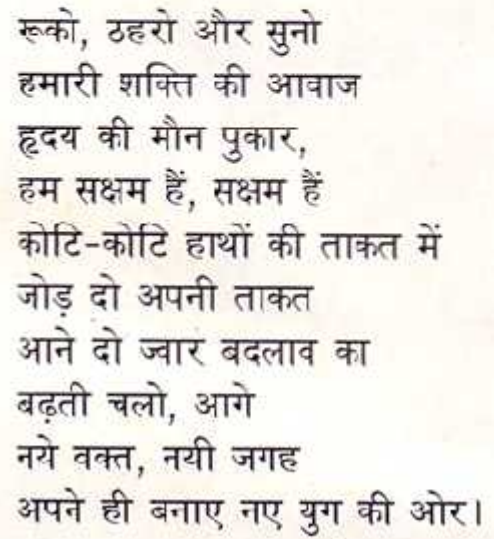 रूको, ठहरो और सुनो
हमारी शक्ति की आवाज
हृदय की मौन पुकार,
हम सक्षम हैं, सक्षम हैं
कोटि-कोटि हाथों की ताकत में
जोड़ दो अपनी ताकत
आने दो ज्वार बदलाव का
बढ़ती चलो, आगे
नये वक्त, नयी जगह
अपने ही बनाए नए युग की ओर।